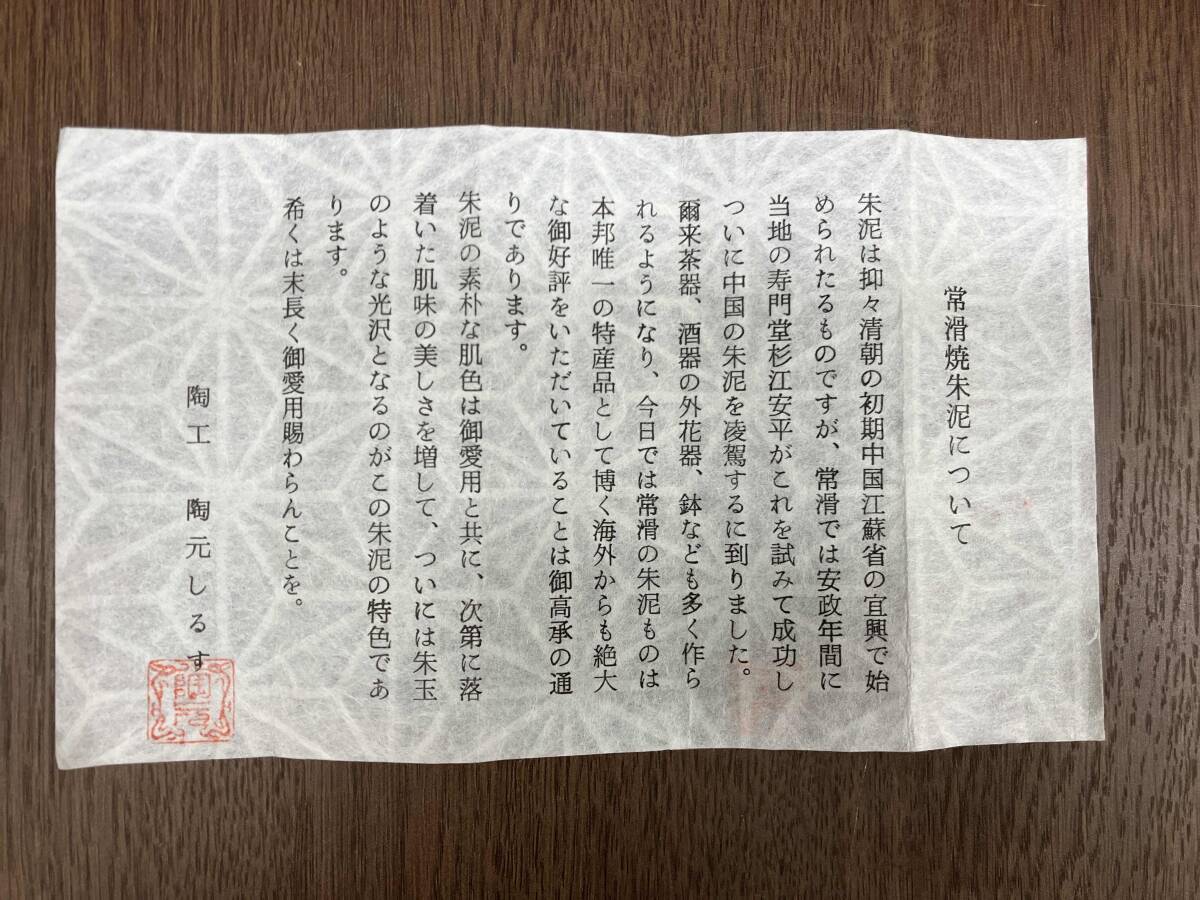 常滑焼朱泥について
朱泥は抑々清朝の初期中国江蘇省の宜興で始
められたるものですが、常滑では安政年間に
当地の寿門堂杉江安平がこれを試みて成功し
ついに中国の朱泥を凌駕するに到りました。
爾来茶器、酒器の外花器、鉢なども多く作ら
れるようになり、今日では常滑の朱泥ものは
本邦唯一の特産品として博く海外からも絶大
な御好評をいただいていることは御高承の通
りであります。
朱泥の素朴な肌色は御愛用と共に、次第に落
着いた肌味の美しさを増して、ついには朱玉
のような光沢となるのがこの朱泥の特色であ
ります。
希くは末長く御愛用賜わらんことを。
陶工 陶元しるす
陶元